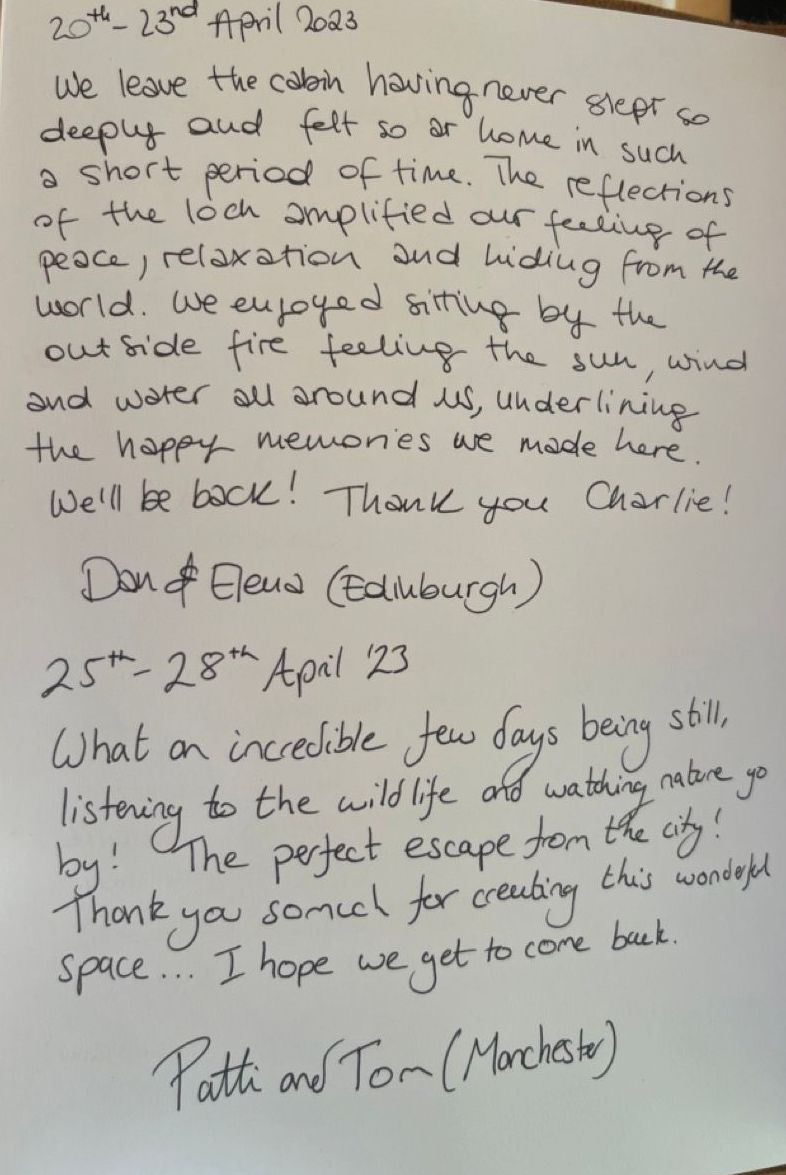 20th - 23nd April 2023
We leave the cabin having never slept so
deeply and felt so at home in such
a short period of time. The reflections
of the loch amplified our feeling of
peace, relaxation and hiding from the
world. We enjoyed sitting by the
outside fire feeling the sun, wind
and water all around us, underlining
the happy memories we made here.
We'll be back! Thank you Charlie!
Dan & Elena (Edinburgh)
25th - 28th April '23
What an incredible few days being still,
listening to the wildlife and watching nature go
by! The perfect escape from the city!
Thank you so much for creating this wonderful
space... I hope we get to come back.
Patti and Tom (Manchester)